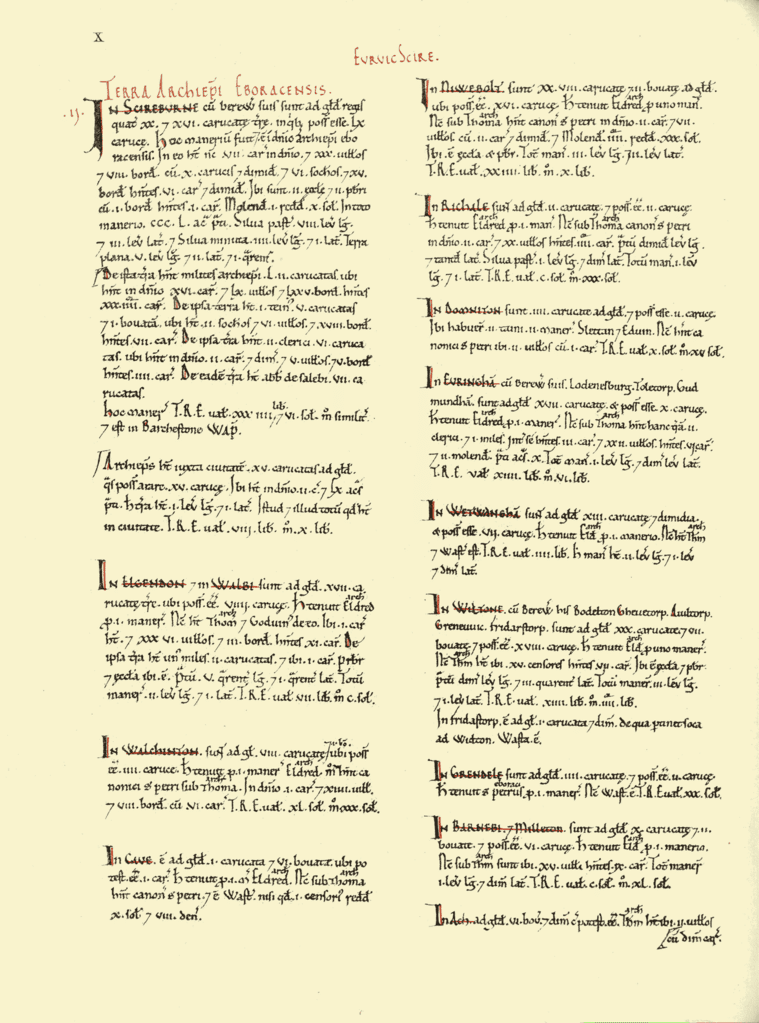 X
EURVICSCIRE.
TERRA ARCHIEPI EBORACENSIS.
.II.
IN SCIREBURNE cū berew suis sunt ad gld̄ regis
quat xx. 7 xvi. carucatę tr̄e. in qͥbꝫ poss̄ esse. lx
carucę. Hoc maneriū fuit 7 ē in dn̄io archiep̄i ebo
racensis. In eo ht̄ nc̄ vii. car̄ in dn̄io. 7 xxx. uilt̄os
7 viii. bord̄. cū .x. carucis 7 dimid̄. 7 vi. socħos 7 xv.
bord̄ hn̄tes vi. car̄ 7 dimid̄. Ibi sunt .ii. ęcclę 7 ii. pbr̄i
cū .i. bord̄ hn̄tes .i. car̄. Molend̄ .i. redd̄ .x. sol. In toto
manerio. ccc. l. ac̄ p̄ti. Silua past̄. viii. lev̄ lḡ.
7 iii. lev̄ lat̄. 7 Silua minuta. iiii. lev̄ lḡ 7 i. lat̄. Terra
plana. v. lev̄ lḡ. 7 ii. lat̄. 7 i. qrent̄.
De ista tr̄a hn̄t milites archiep̄i. l. ii. carucatas. ubi
hn̄t in dn̄io xvi. car̄. 7 lx. uilt̄os 7 lxxv. bord̄. hn̄tes
xx. iiii. car̄. De ipsa terra ht̄ .i. tein̄. v. carucatas
7 i. bouatā. ubi ht̄ .ii. socħos 7 vi. uilt̄os. 7 xviii. bord̄.
hn̄tes. vii. car̄. De ipsa tr̄a hn̄t .ii. clerici. vi. caruca
tas. ubi hn̄t in dn̄io. ii. car̄. 7 dim̄. 7 v. uilt̄os 7 v. bord̄
hn̄tes. iiii. car̄. De eadē tr̄a ht̄ abb̄ de salebi. vii. ca
rucatas.
Hoc maner̄ T.R.E. uat̄. xxx iiii. lib̄. 7 vi. sol. m̄ similit̄.
7 est in Barchestone Wap̄.
Archiep̄s ht̄ iuxta ciuitatē .xv. carucatas ad gld̄.
qͣs poss̄ arare .xv. carucę. Ibi ht̄ in dn̄io .ii. c̄. 7 lx. ac̄s
p̄ti. H tr̄a ht̄ .i. lev̄ lḡ. 7 i. lat̄. Istud 7 illud totū qd̄ ht̄
in ciuitate. T.R.E. uat̄. viii. lib̄. m̄ .x. lib̄.
IN ELGENDON 7 in WALBI sunt ad gld̄. xvii. ca
rucatę tr̄e. ubi poss̄ . eē. viiij. carucę. H tenuit Eldred arch̄
p̄ .i. maner̄. Nc̄ ht̄ Thom̄ arch̄ 7 Goduin̄ de eo. Ibi .i. car̄
ht̄. 7 xxx vi. uilt̄os. 7 iii. bord̄. hn̄tes xi. car̄. De
ipsa tr̄a ht̄ un̄ miles .ii. carucatas. 7 ibi .i. car̄. prb̄r
7 ęccła ibi .ē. p̄tū. v. qrent̄ lḡ. 7 i. qrent̄ lat̄. Totū
maner̄ .ii. lev̄ lḡ. 7 i. lat̄. T.R.E. uat̄. vii. lib̄. m̄ c. sol.
IN WALCHINTON. sun̄t ad gl̄. viii. carucatę 7 vi. bō. ubi poss̄
eē. iiii. carucę. H tenuit p̄ .i. maner̄ Eldred arch̄. m̄ hn̄t ca
nonici s̄ petri sub Thoma arch̄. In dn̄io .i. car̄. 7 xiiii. uilt̄.
7 viii. bord̄. cū vi. car̄. T.R.E. uat̄. xl. sol. m̄ xxx. sol.
IN CAVE. ē ad gld̄ .i. carucata 7 vi. bouatę. ubi po
test .eē .i. car̄. H tenuit p̄ .i. m̄ Eldred arch̄. Nc̄ sub Thoma arch̄
hn̄t canon̄ s̄ petri. 7 ē Wast̄. nisi qd̄ .i. censori redd̄
x. sol 7 viii. den̄.
IN NIWEBOLT sunt xx. viii. carucatę 7 ii. bouatę ad gld̄.
ubi poss̄ eē. xvi. carucę. H tenuit Eldred arch̄ p̄ uno man̄.
Nc̄ sub Thoma arch̄ hn̄t canon̄ s̄ petri in dn̄io .ii. car̄. 7 vii.
uilt̄os cū .ii. car̄ 7 dimid̄. 7 Molend̄ .iiii. redd̄. xxx. sol.
Ibi .ē. ęccła & pbr̄. Tot̄ man̄ .iii. lev̄ lḡ. 7 ii. lev̄ lat̄.
T.R.E. uat̄. xx iiii. lib̄. m̄ .x. lib̄.
IN RICHALE sun̄t ad gld̄ .ii. carucatę. 7 poss̄ eē .ii. carucę.
H tenuit Eldred arch̄ p̄ .i. man̄. Nc̄ sub Thoma arch̄ canon̄ s̄ petri
in dn̄io .ii. car̄. 7 xx. uilt̄os hn̄tes .iiii. car̄. p̄tū dimid̄ lev̄ lḡ.
7 tantd̄ lat̄. Silua past̄ .i. lev̄ lḡ. 7 dim̄ lat̄. Totū man̄ .i. lev̄
lḡ. 7 i. lat̄. T.R.E. uat̄. c. sol. m̄ xxx. sol.
IN DOMNITON sunt .iiii. carucatę ad gld̄. 7 poss̄ esse .ii. carucę.
Ibi habuer̄ .ii. taini .ii. maner̄. Slettan 7 Eduin. Nc̄ hn̄t ca
nonici s̄ petri ibi .ii. uilt̄os cū .i. car̄. T.R.E. uat̄. x. sol. m̄ xv sol.
IN EURINGHĀ cū berew̄ suis. Lodenesburg. Tolecorp. Gud
mundhā. sunt ad gld̄ xvii. carucatę. & poss̄ esse .x. carucę.
H tenuit Eldred arch̄. p̄ .i. maner̄. Nc̄ sub Thoma arch̄ hn̄t hanc tr̄a .ii.
clerici. 7 i. miles. Int̄ se hn̄tes .iii. car̄. 7 xx ii. uilt̄os. hn̄tes vi car̄.
7 ii. molend̄. p̄ti ac̄s .x. Tot̄ man̄ .i. lev̄ lḡ. 7 dim̄ lev̄ lat̄.
T.R.E. uat̄ xiiii. lib̄. m̄ .vi. lib̄.
IN WETWANGHĀ sun̄t ad gld̄ xiii. carucatę 7 dimidia.
& poss̄ esse. vii. carucę. H tenuit Eld̄ arch̄ p̄ .i. manerio. Nc̄ ht̄ Thm̄ arch̄
7 Wast̄ est. T.R.E. uat̄. iiii. lib̄. H man̄ ht̄ .ii. lev̄ lḡ. 7 i. lev̄
7 dim̄ lat̄.
IN WIDTONE. cū Berew̄ his Bodelton Gheuetorp. Auitorp.
Greneuuic. Fridarstorp. sunt ad gld̄ xxx. carucatę 7 vii.
bouatę. 7 poss̄ .eē. xviii. carucę. H tenuit Eld̄ arch̄. p̄ uno maner̄.
Nc̄ Thm̄ arch̄ ht̄ ibi .xv. censores hn̄tes. vii. car̄. Ibi ē ęccła 7 pbr̄.
p̄tū dim̄ lev̄ lḡ. 7 iii. quarent̄ lat̄. Totū maner̄ .iii. lev̄ lḡ.
7 i. lev̄ lat̄. T.R.E. uat̄. xiiii. lib̄. m̄ .iiii. lib̄.
In Fridastorp. ē ad gl̄ .i. carucata 7 dim̄. de qua p̄tinet soca
ad Widton. Wasta .ē.
IN GRENDELE sunt ad gld̄. iiii. carucatę. 7 poss̄ .eē .ii. carucę.
H tenuit s̄ petrus eborac̄. p̄ .i. maner̄. Nc̄ Wast̄ .ē. T.R.E. uat̄. xxx. sol.
IN BARNEBI. 7 Milleton. sunt ad gld̄ x. carucatę 7 ii.
bouatę. 7 poss̄ .eē. vi. carucę. H tenuit Eld̄ arch̄. p̄ .i. manerio.
Nc̄ sub Thm̄ arch̄ sunt ibi .xv. uilt̄i hn̄tes .ix. car̄. Tot̄ maner̄
.i. lev̄ lḡ. 7 dim̄ lat̄. T.R.E. uat̄. c. sol. m̄ xl. sol.
IN Ach. ad gld̄. vi. bou̅. 7 dim̄ c̄ potest .eē. Thm̄ arch̄ ht̄ ibi .ii. uilt̄os
cū dim̄ car̄.